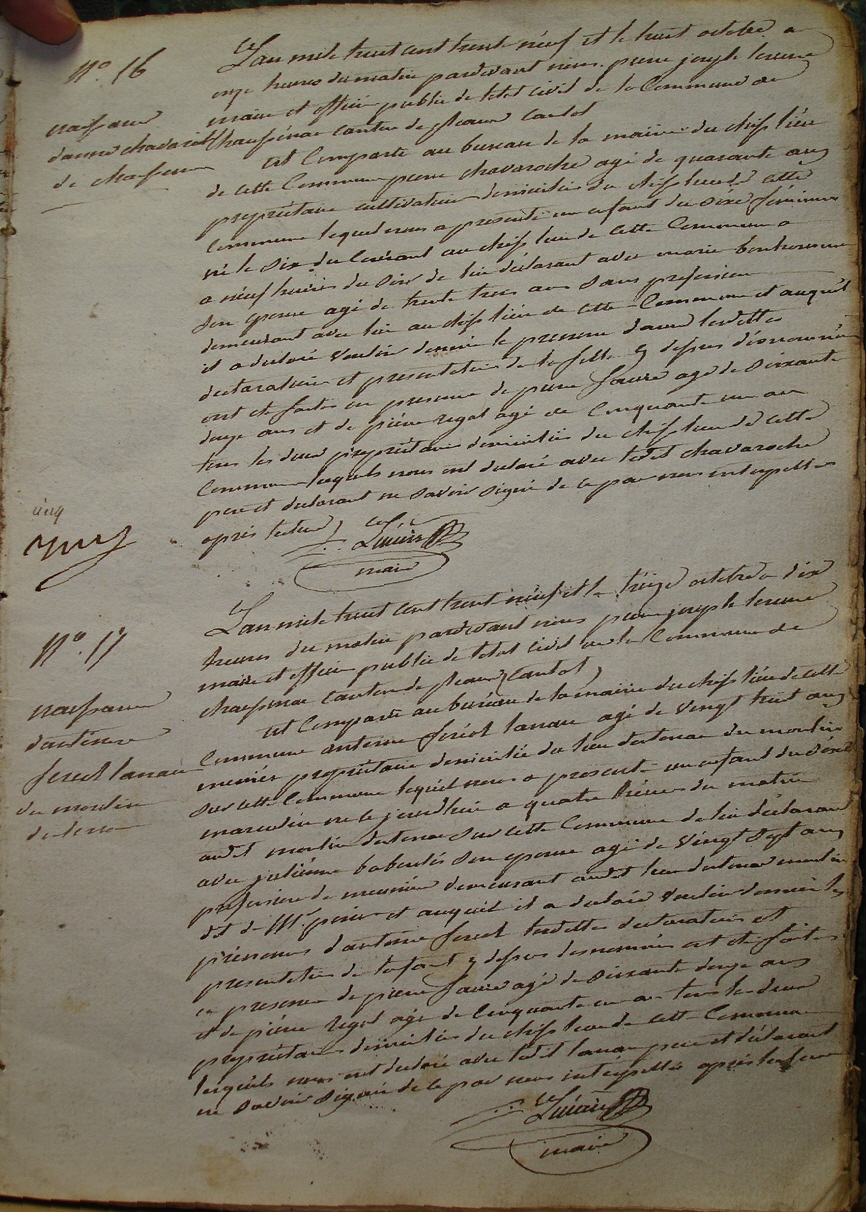 N° 16
naissance
d'anne chavaroche
de chaussenac
L'an mile huit cent trente neuf et le huit octobre a
onze heures du matin pardevant nous pierre joseph
maire et officier public de letat civil de la Commune de
chaussenac canton de pleaux cantal
est Comparu au bureau de la mairie du chef lieu
de cette Commune pierre chavaroche agé de quarante ans
propriétaire cultivateur domicilié du chef lieu de cette
Commune lequel nous a presenté un enfant du sexe féminin
né le six du Courant au chef lieu de cette Commune a
a neuf heures du soir de lui déclarant avec marie bonhomme
son epouse agé de trente trois ans sans profession
demeurant avec lui au chef lieu de cette Commune et auquel
il a déclaré vouloir donner le prenom d'anne lesdittes
declaration et presentation de la fille y dessus denommée
ont eté faites en presence de pierre faure agé de soixante
douze ans et de pierre rigal agé de Cinquante un an
tous les deux propriétaires domiciliés du chef lieu de cette
Commune lesquels nous ont declaré avec ledit chavaroche
pere et declarant ne savoir signer de ce par nous interpellés
après lecture
maire
cinq
N° 17
naissance
d'antoine
feriol lanau
du moulin
L'an mile huit cent trente neuf et le treize octobre a dix
heures du matin pardevant nous pierre joseph
maire et officier public de letat civil de la Commune de
chaussenac canton de pleaux (Cantal)
est Comparu au bureau de la mairie du chef lieu de cette
Commune antoine feriol lanau agé de vingt huit ans
meunier propriétaire domicilié du lieu du moulin
sur cette Commune lequel nous a presenté un enfant du sexe
masculin né le jourdhui a quatre heures du matin
audit moulin sur cette Commune de lui déclarant
avec julienne son epouse agé de vingt sept ans
profession de meunière demeurant audit lieu moulin
dit de Mr et auquel il a déclaré vouloir donner le
prenoms d'antoine feriol lesdittes declaration et
presentation de lenfant y dessus denommé ont eté faites
en presence de pierre faure agé de soixante douze ans
et de pierre rigal agé de Cinquante un an tous les deux
propriétaires domiciliés du chef lieu de cette Commune
lesquels nous ont declaré avec ledit lanau pere et déclarant
ne savoir signer de ce par nous interpellés après lecture
maire